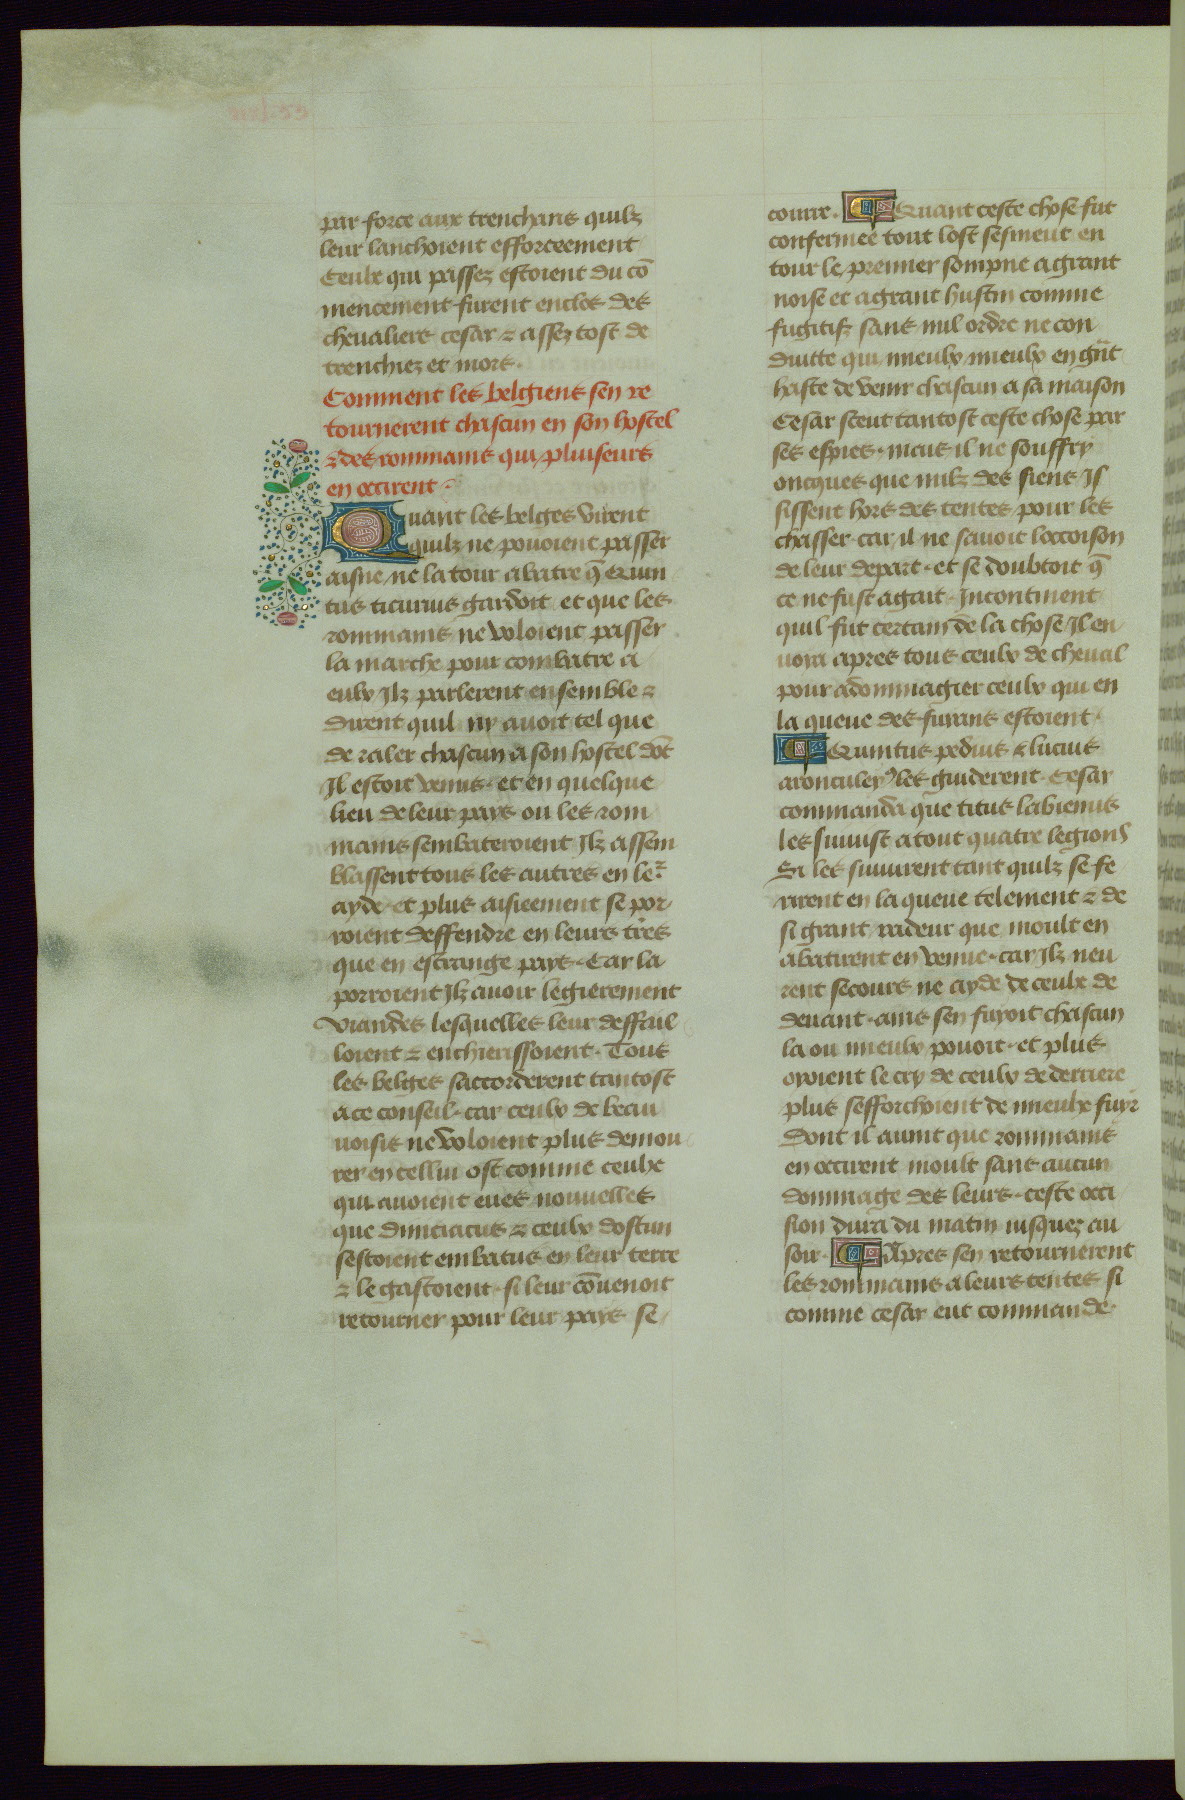 par force aux trenchans quilz
leur lanchoient efforceement
Ceulx qui passez estoient du cō
mencement furent enclos des
chevaliers cesar ⁊ assez tost de
trenchiez et mors.
Comment les belgiens sen re
tournerent chascun en son hostel
⁊ des rommains qui pluiseurs
en occirent
Quant les belges virent
quilz ne pouoient passer
aisne ne la tour abatre q̄ Quin
tus ticurius gardoit et que les
rommains ne voloient passer
la marche pour combatre a
eulx Ilz parlerent ensemble ⁊
dirent quil ny auoit tel que
de raler chascun a son hostel dōt
Il estoit venus. et en quelque
lieu de leur pays ou les rom
mains sembateroient Ilz assem
blassent tous les autres en ler̄
ayde. et plus aisieement se por
roient deffendre en leurs tr̄es
que en estrange pays. Car la
porroient Ilz auoir legierement
viandes lesquelles leur deffail
loient ⁊ enchierissoient. Tous
les belges saccorderent tantost
a ce conseil. car ceulx de beau
uoisis ne voloient plus demou
rer en cellui ost comme ceulx
qui auoient eues nouuelles
que diuiciacus ⁊ ceulx dostun
sestoient embatus en leur terre
⁊ le gastoient. si leur cōuenoit
retourner pour leur pays se
courre. Quant ceste chose fut
confermee tout lost sesmeut en
tour le premier sompne a grant
noise et a grant hustin comme
fugitifz sans nul ordre ne con
duitte qui mieulx mieulx en gr̄t
haste de venir chascun a sa maison
Cesar sceut tantost ceste chose par
ses espies. mais il ne souffry
oncques que nulz des siens Is
sissent hors des tentes pour les
chasser. car il ne sauoit loccoison
de leur depart. et se doubtoit q̄
ce ne fust agait. Incontinent
quil fut certain de la chose Il en
uoia apres tous ceulx de cheual
pour adommagier ceulx qui en
la queue des fuians estoient.
Quintus pedius & lucius
aronculey⁹ les guiderent. Cesar
commanda que titus labienus
les siuuist a tout quatre legions
Si les siuuirent tant quilz se fe
rirent en la queue telement ⁊ de
si grant radeur que moult en
abatirent en venue. car Ilz neu
rent secours ne ayde de ceulx de
deuant. ains sen fuyoit chascun
la ou mieulx pouoit. et plus
oyoient le cry de ceulx de derriere
plus sefforchoient de mieulx fuyr
Dont il auint que rommains
en occirent moult sans aucun
dommage des leurs. ceste occi
sion dura du matin iusquez au
soir. Apres sen retournerent
les rommains a leurs tentes si
comme cesar eut commande.